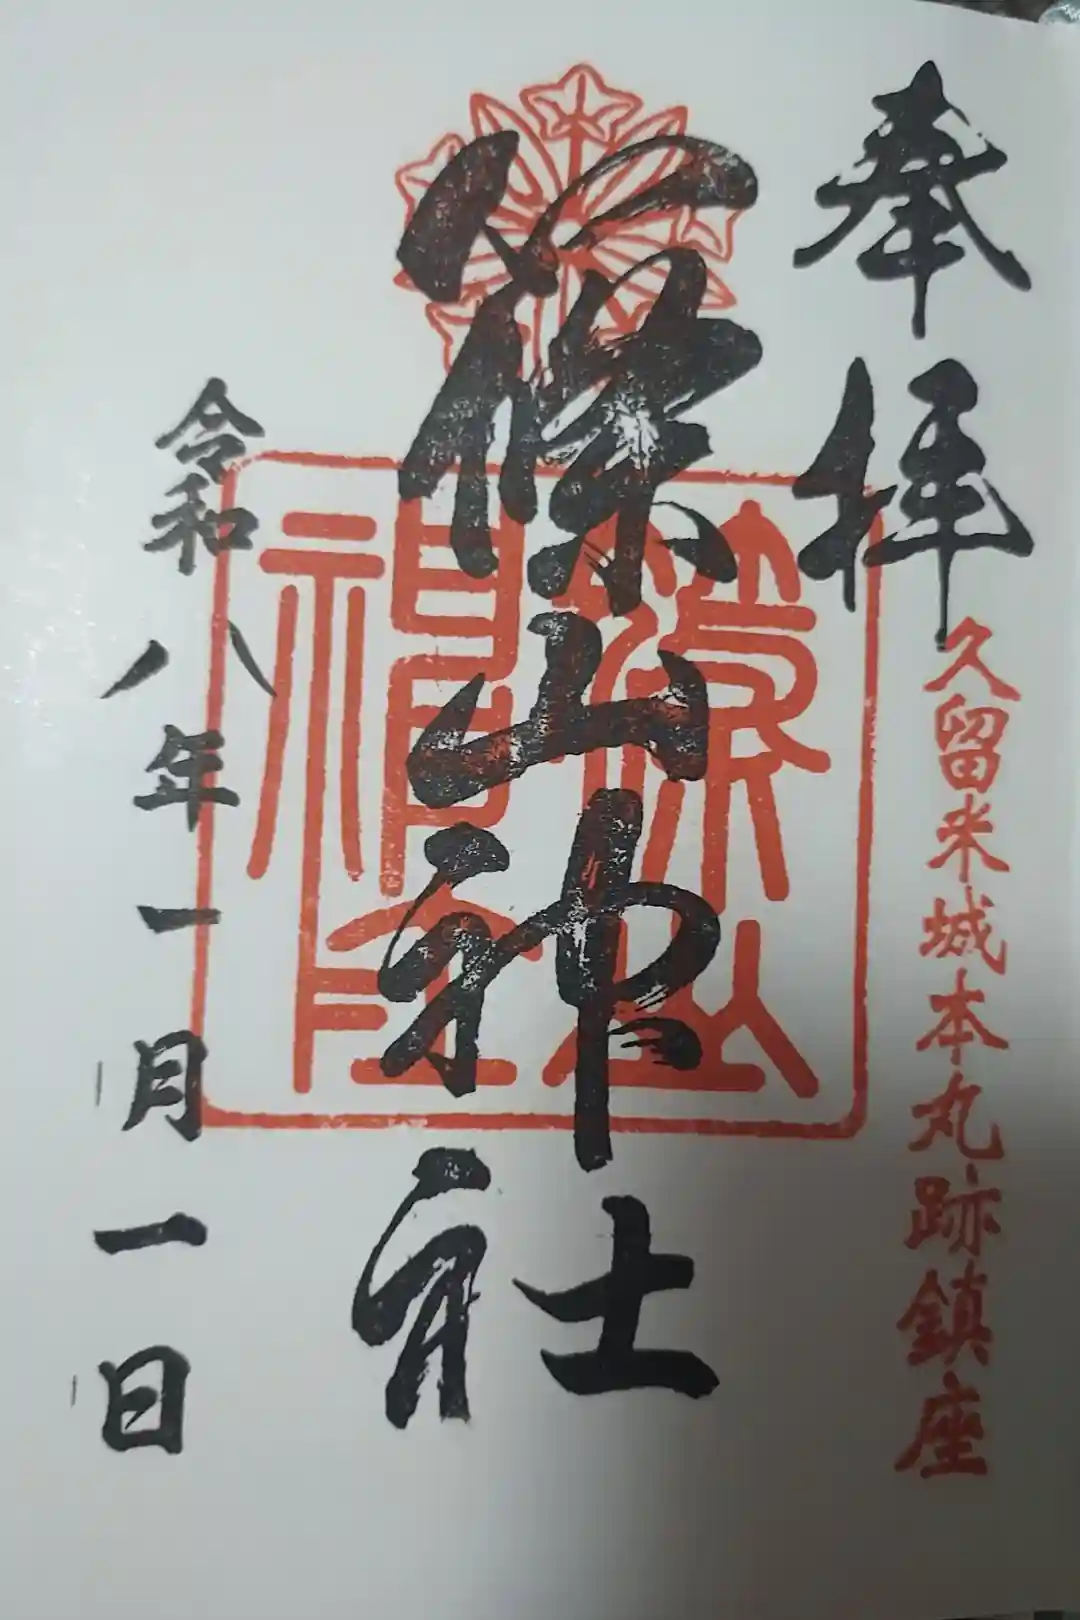 奉拝
久留米城本丸跡鎮座
篠山神社
篠山
神社
令和八年一月一日